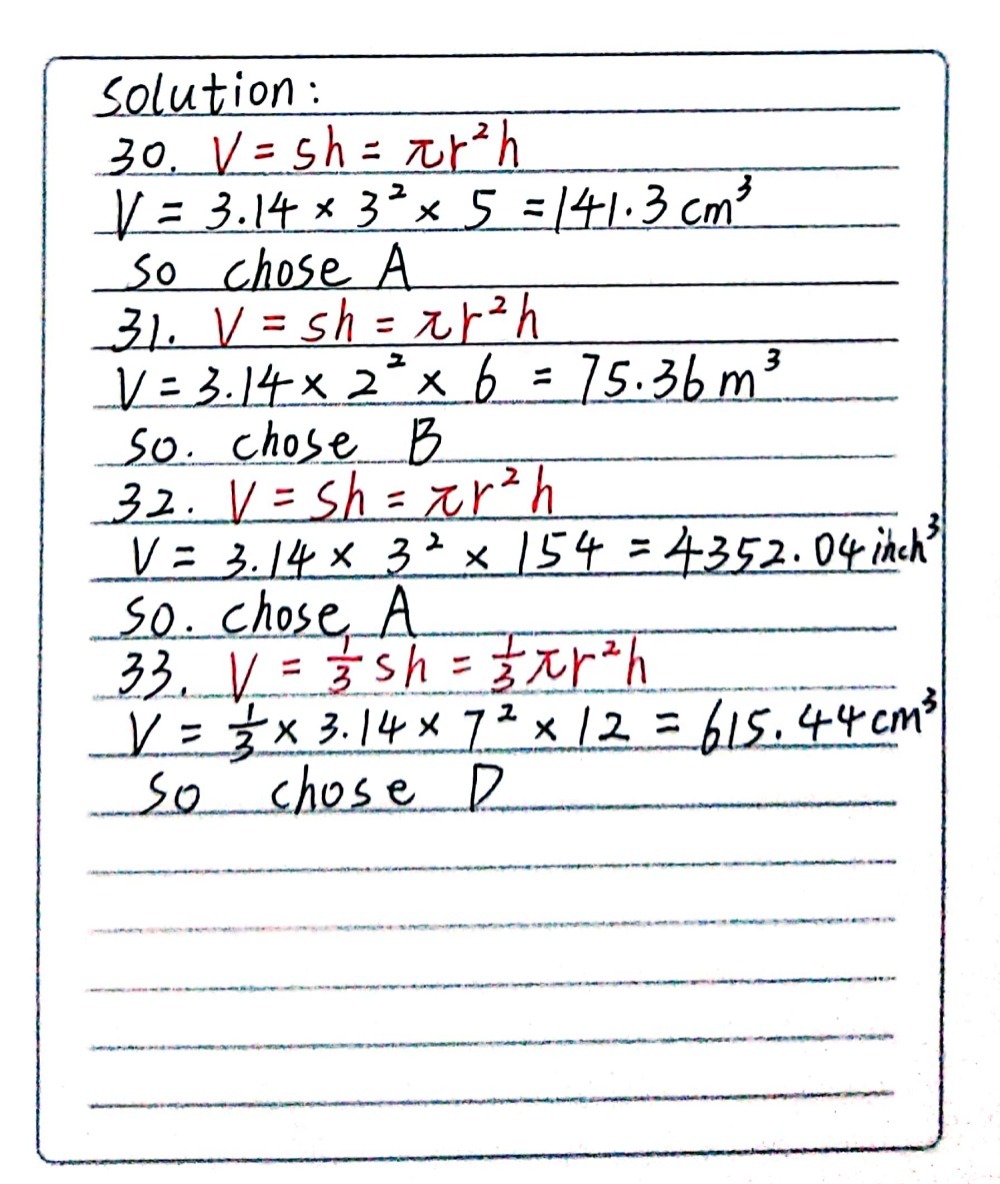 Solution:
30. V = sh = πr²h
V = 3.14 × 3² × 5 = 141.3 cm³
so chose A
31. V = sh = πr²h
V = 3.14 × 2² × 6 = 75.36 m³
so. chose B
32. V = sh = πr²h
V = 3.14 × 3² × 154 = 4352.04 inch³
so. chose A
33. V = 1/3 sh = 1/3 πr²h
V = 1/3 × 3.14 × 7² × 12 = 615.44 cm³
so chose D